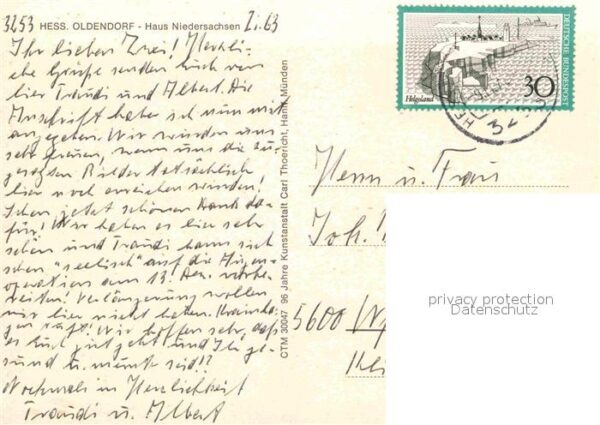 3253 HESS. OLDENDORF - Haus Niedersachsen Zi. 63
Ihr lieben Zwei! Herzli-
che Grüße senden Euch von
hier Traudi und Albert. Die
Anschrift habe ich nun mit
angegeben. Wir würden uns
sehr freuen, wenn uns die zu-
gesagten Bilder tatsächlich
hier noch erreichen würden!
Schon jetzt schönen Dank da-
für! Wir haben es hier sehr
schön und Traudi kann sich
schon "seelisch" auf die Augen-
operation am 13. Dez. vorbe-
reiten. Verlängerung wollen
wir hier nicht haben.
ruft! Wir hoffen sehr, daß
es Euch gut geht und Ihr ge-
sund u. munter seid!!
Nochmals in Herzlichkeit
Traudi u. Albert
CTM 30047 96 Jahre Kunstanstalt Carl Thoericht, Hann. Münden
Helgoland
30
DEUTSCHE BUNDESPOST
Herrn u. Frau
Joh.
5600
privacy protection
Datenschutz